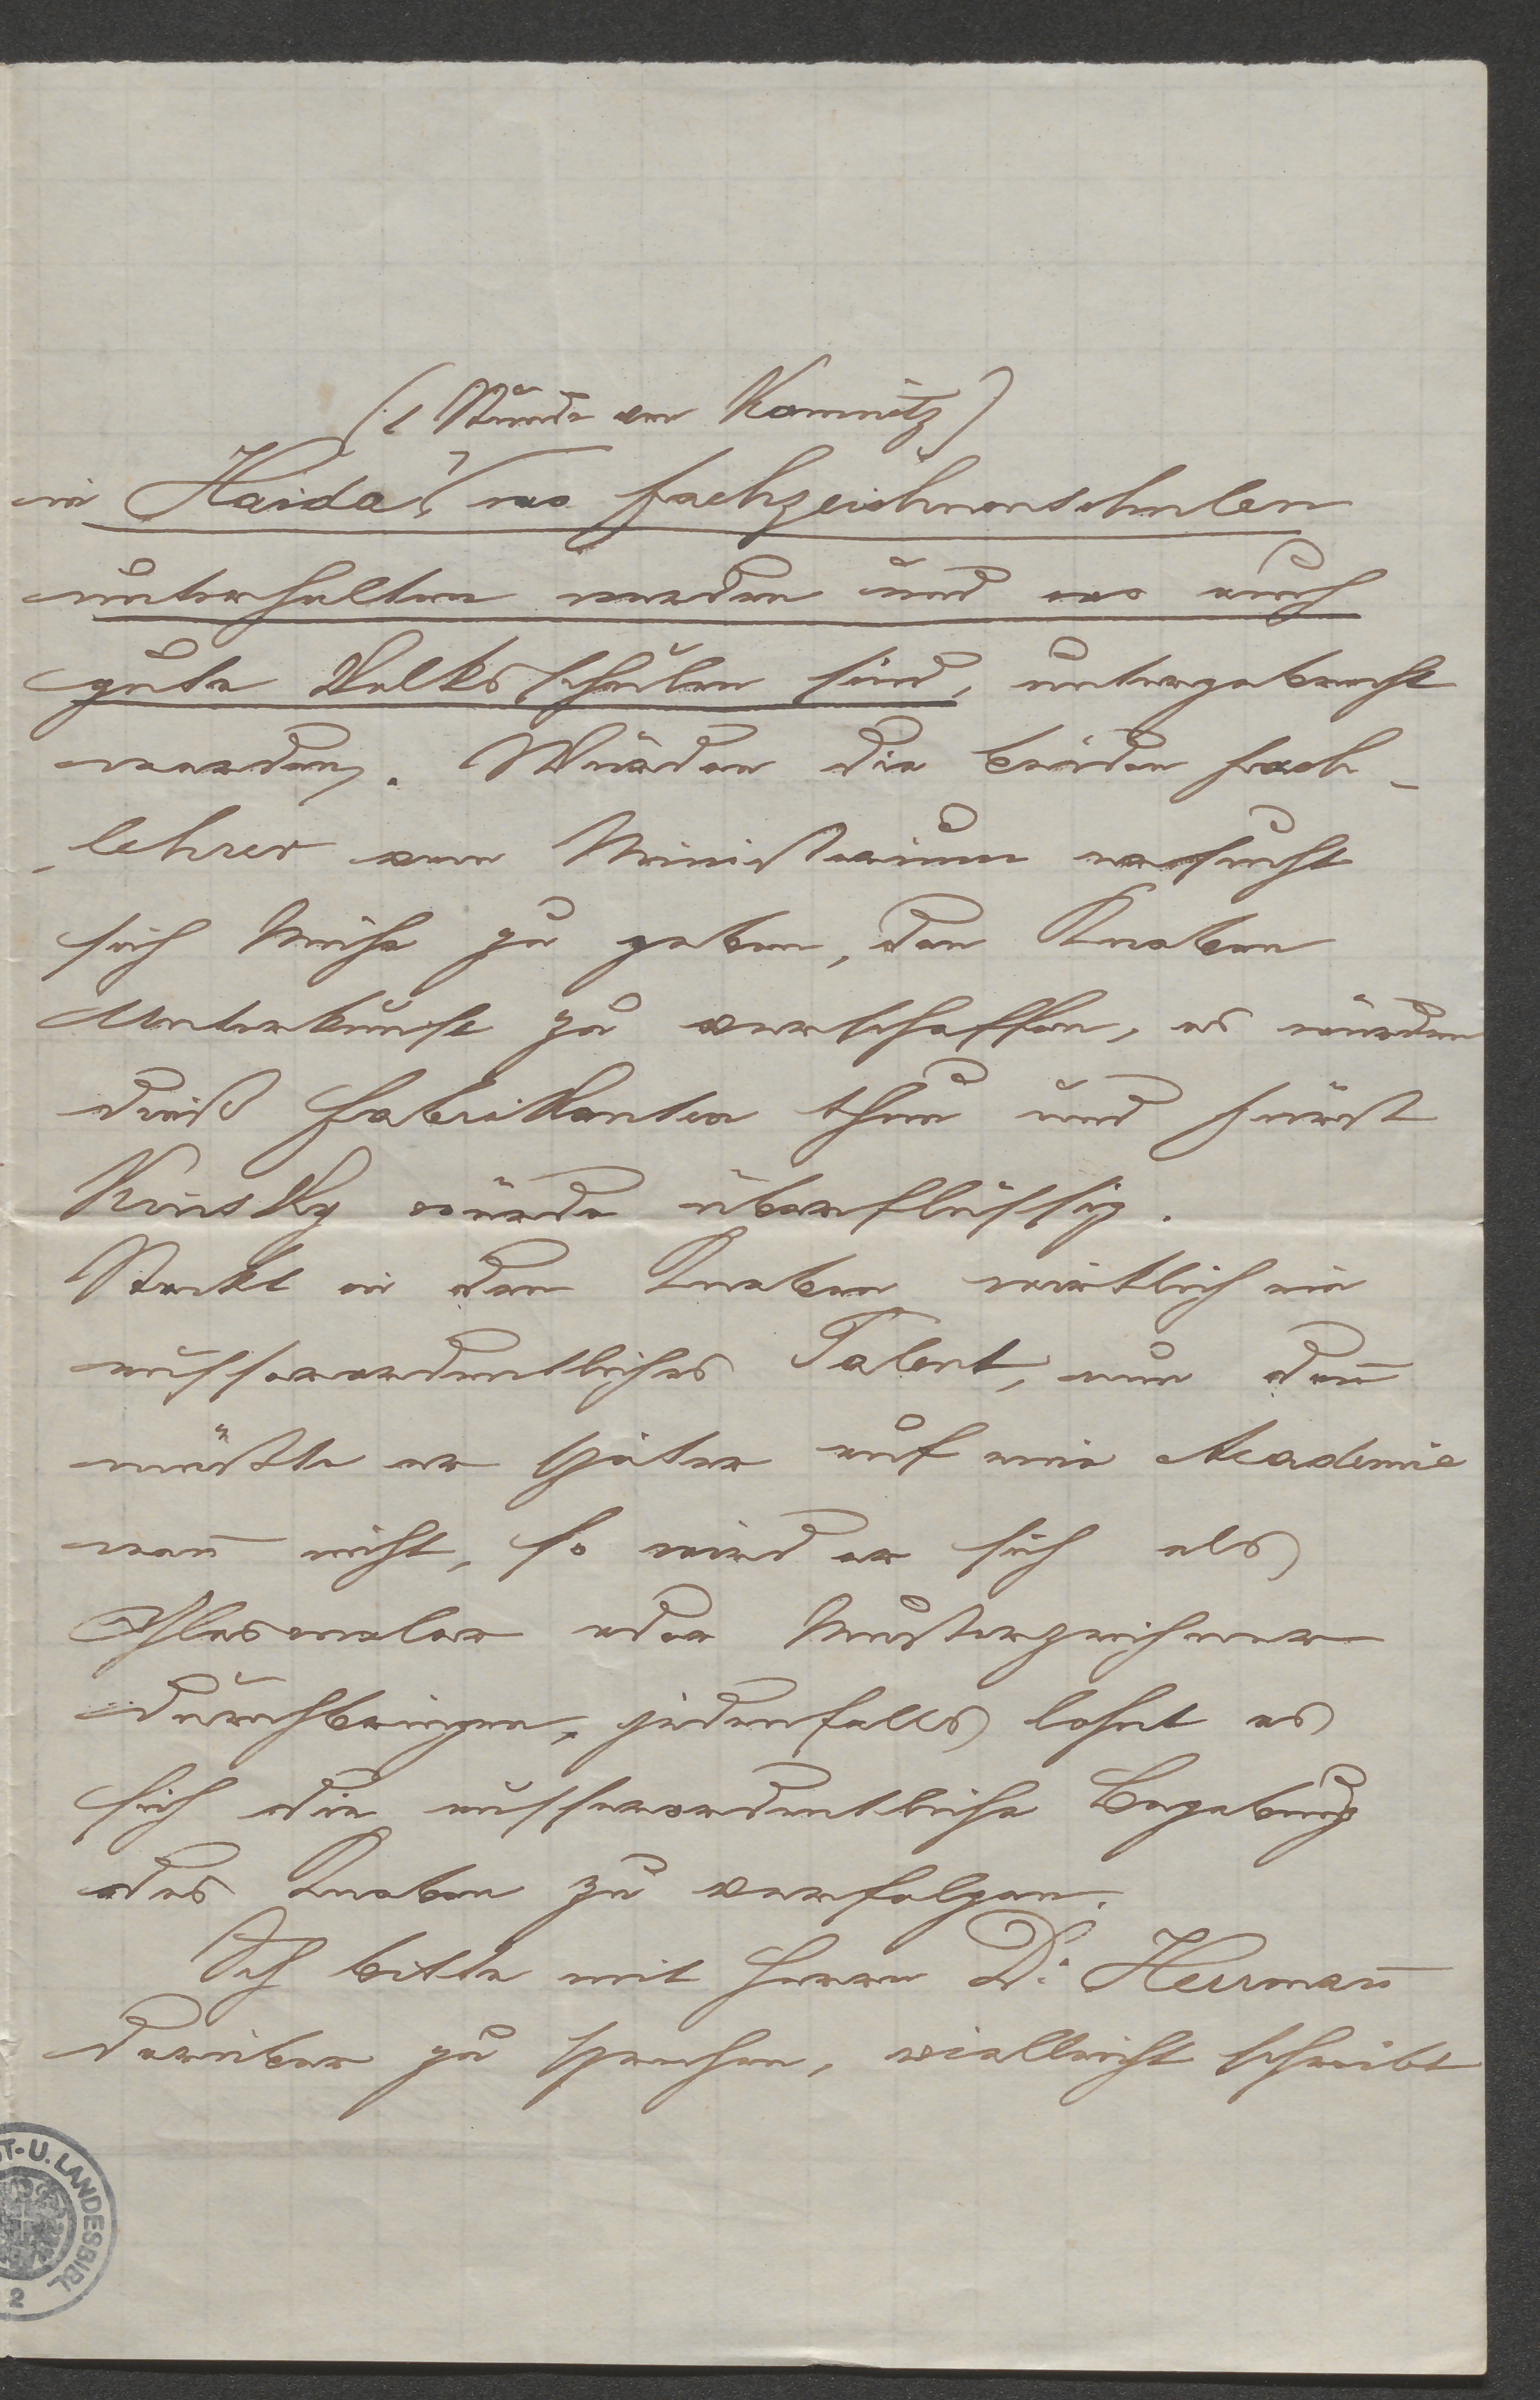 (1 Stunde von Kamnitz)
in Haida, wo Fachzeichenschulen
unterhalten werden und wo auch
gute Volksschulen sind, untergebracht
werden. Würden die beiden Fach-
-lehrer vom Ministerium ersucht
sich Mühe zu geben, den Knaben
Unterkunft zu verschaffen, es würden
dieß Fabrikanten thun und Fürst
Kinsky würde überflüssig.
Steckt in dem Knaben wirklich ein
aussererordentliches Talent, nun dan̄
müßte er später auf eine Academie
wen̄ nicht, so wird er sich als
Glasmaler oder Musterzeichner
durchbringen, jedenfalls lohnt es
sich die ausserordentliche Begabung
des Knaben zu verfolgen.
Ich bitte mit Herrn Dr. Herrman̄
darüber zu sprechen, vielleicht schreibt
T-U. LANDESBIBL
2